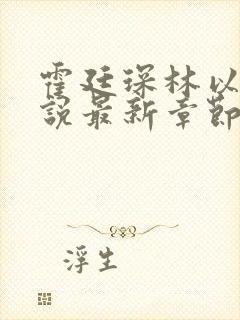 霍廷琛林以
說最新章節
浮生